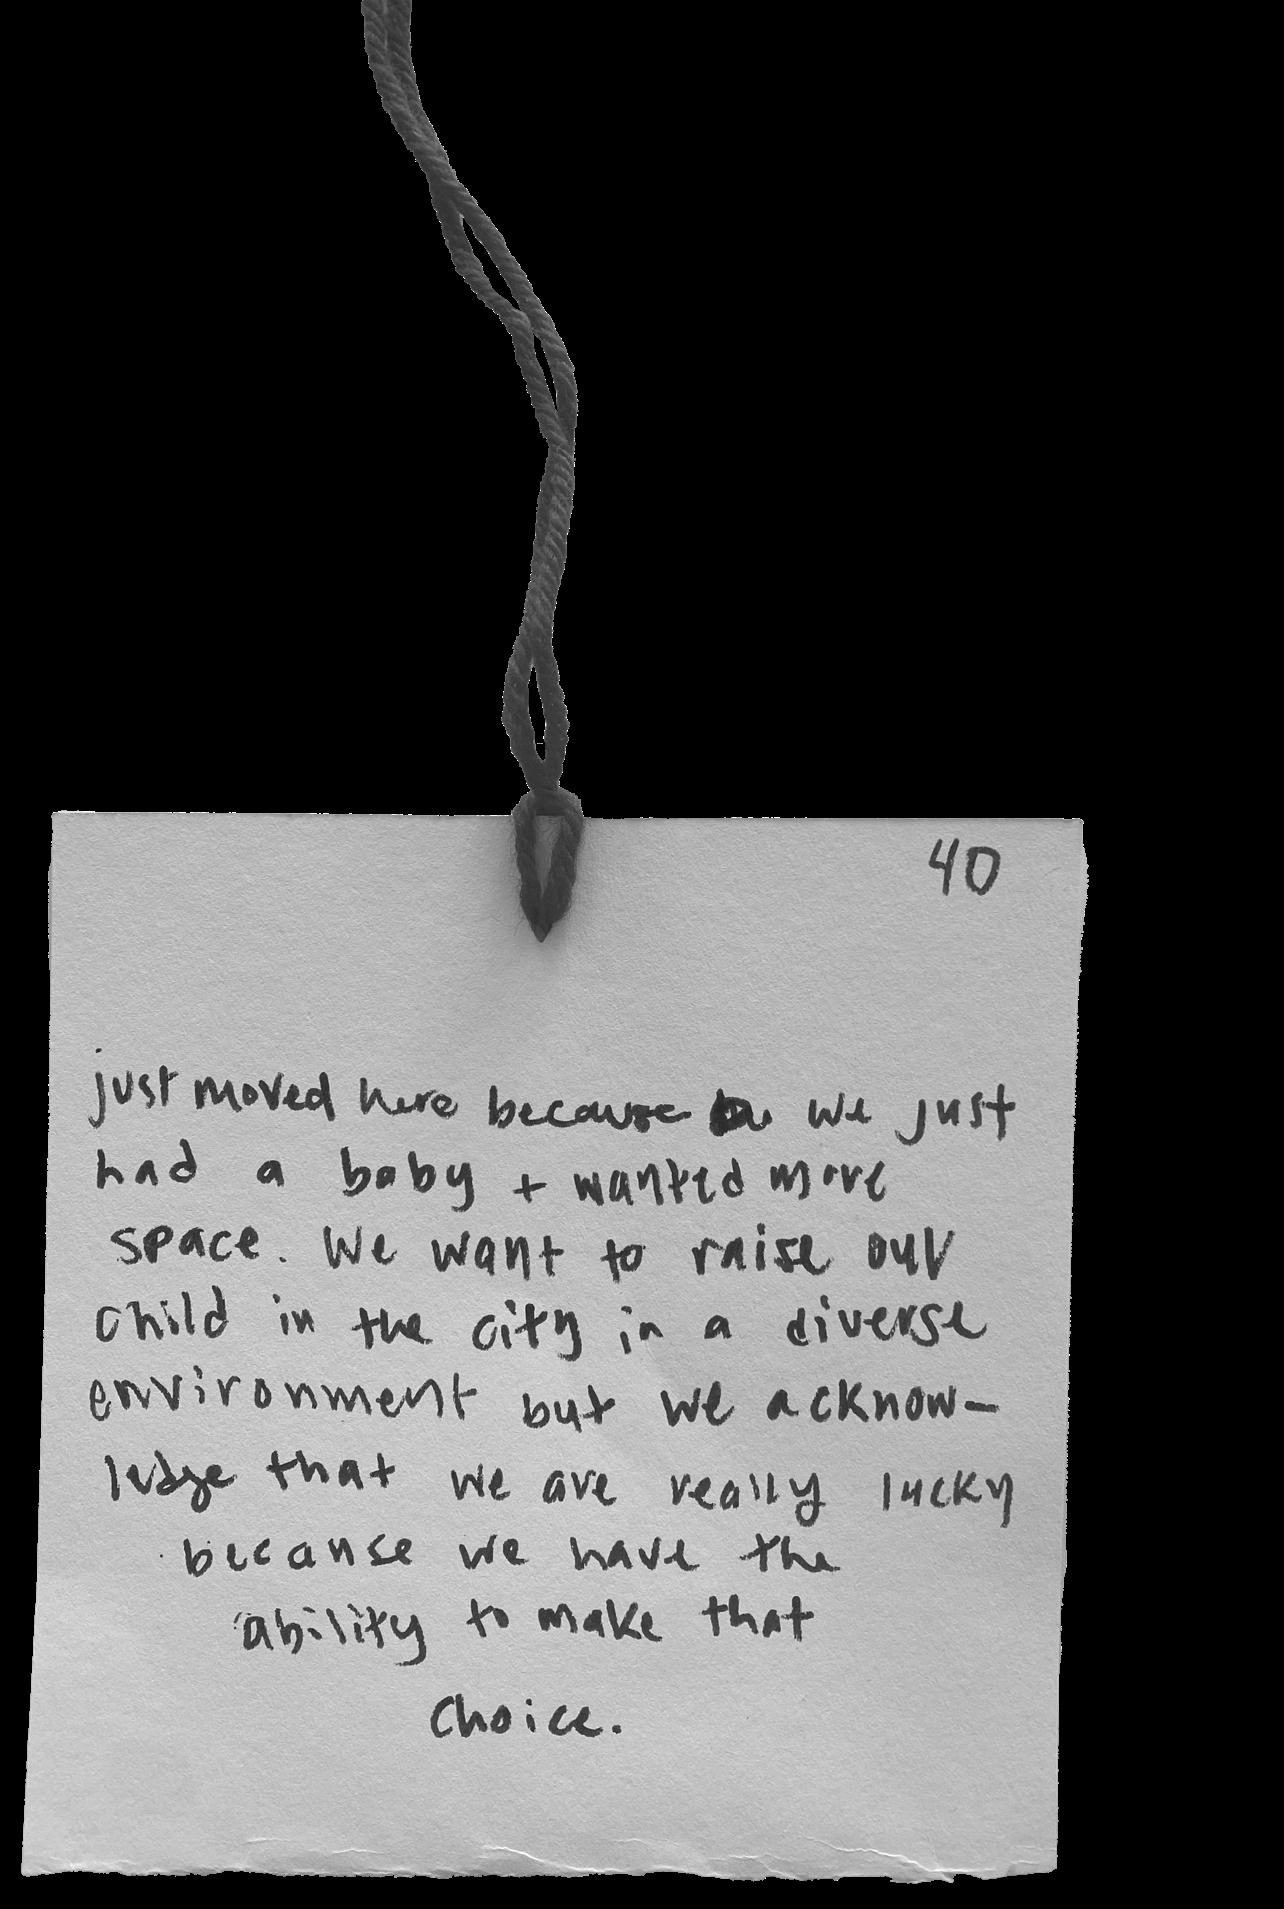 40
just moved here because we just
had a baby + wanted more
space. We want to raise our
child in the city in a diverse
environment but we acknow-
ledge that we are really lucky
because we have the
ability to make that
choice.